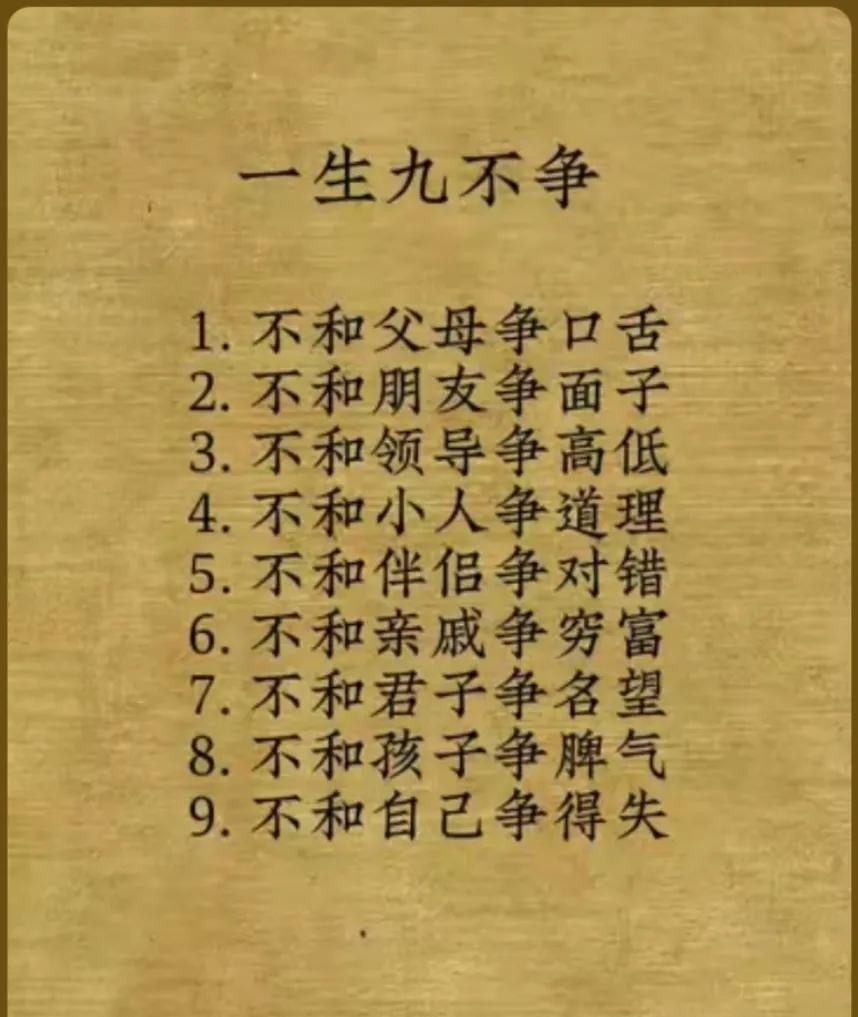 一生九不争
1. 不和父母争口舌
2. 不和朋友争面子
3. 不和领导争高低
4. 不和小人争道理
5. 不和伴侣争对错
6. 不和亲戚争穷富
7. 不和君子争名望
8. 不和孩子争脾气
9. 不和自己争得失